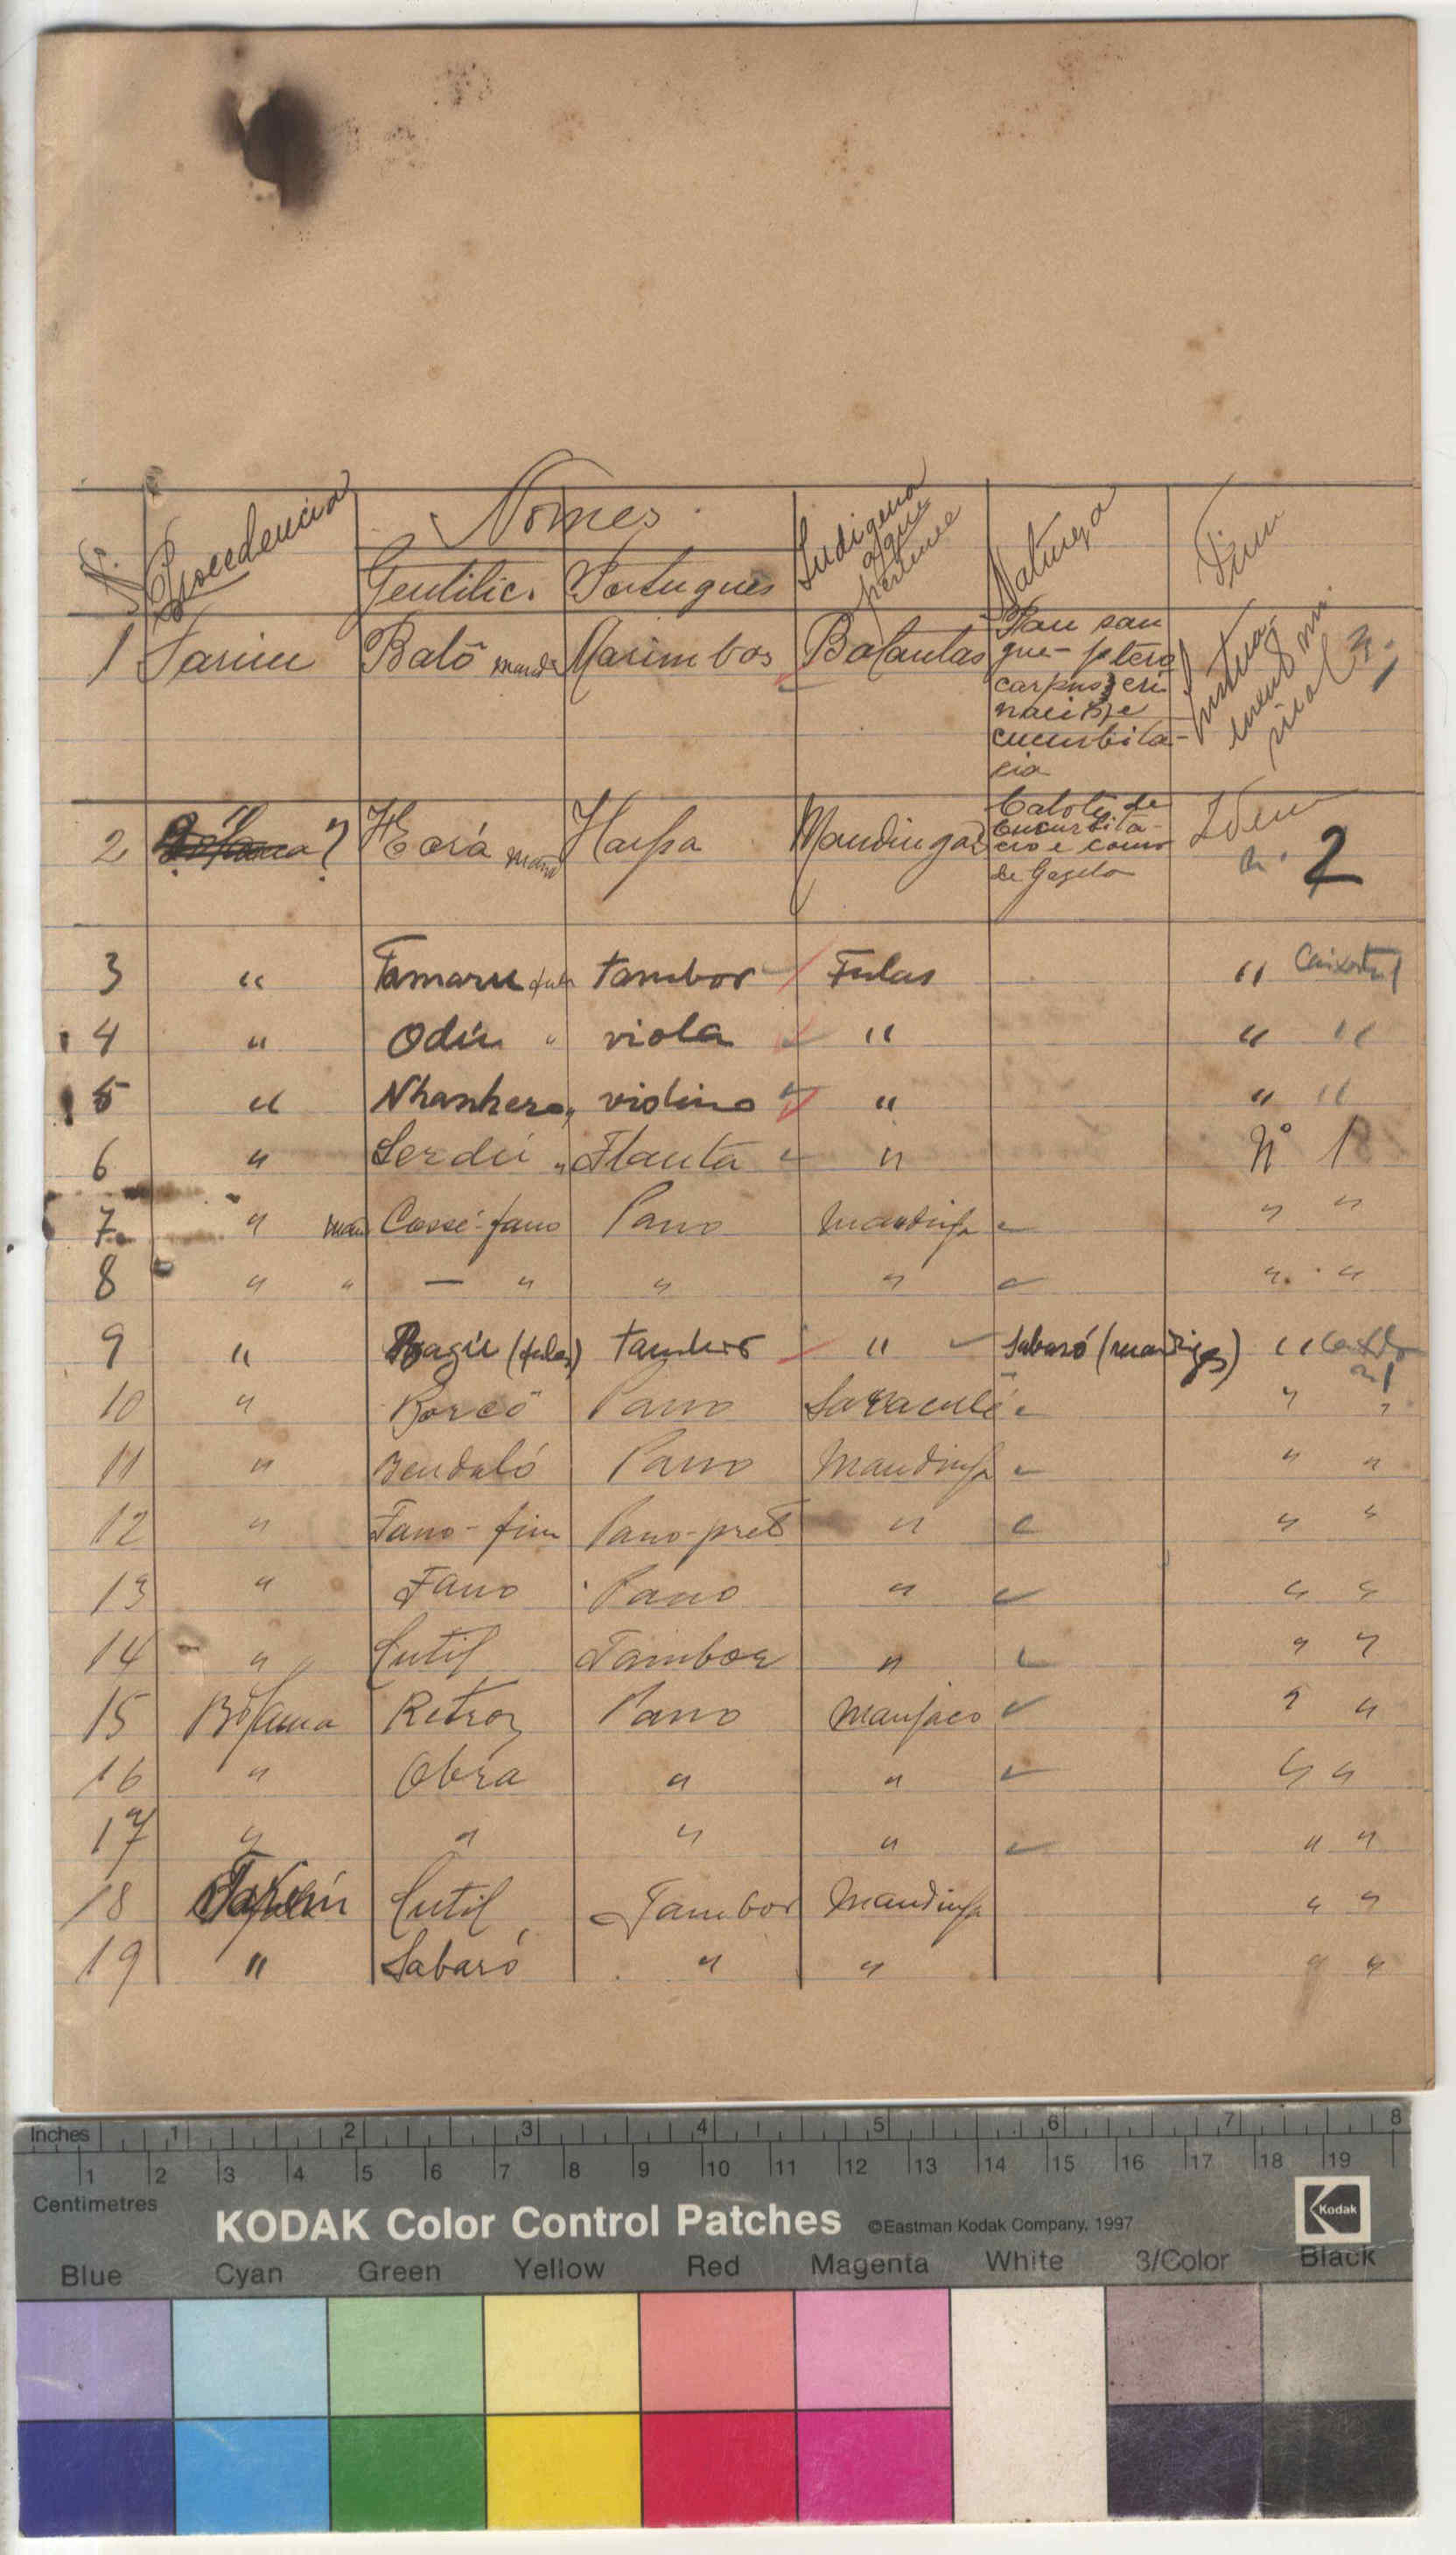 Nº Procedencia Nomes Indigena a que pertence Natureza Fim
Gentilic. Portugues
1 Farim Balô mand Marimbas Balantas Pau san
gue - ptero
carpus eri
nacius e
cucurbita-
cia
Instru-
mento mu
sical n. 1
2 " Bolama ? Korá mand Harpa Mandingas Cabote de
cucurbita-
cio e couro
de Gazela
Idem
n. 2
3 " Tamaru fula tambor Fulas " Caixote n 1
4 " Odiu " viola " " "
5 " Nhanhero " violino " " "
6 " Serdú " Flauta " Nº 1
7 " man Cassé-fano Pano Mandinga " "
8 " " — " " " " "
9 " Bagú (fulas) tambor " Sabaró (mandigas) " Caixote n 1
10 " Borcô Pano Sarraculé " "
11 " Bendaló Pano Mandinga " "
12 " Fano-fim Pano-preto " " "
13 " Fano Pano " " "
14 " Cutil Tambor " " "
15 Bolama Retroz Pano Manjaco " "
16 " Obra " " " "
17 " " " " " "
18 Farim Cutil Tambor Mandinga " "
19 " Sabaró " " " "
Inches 1 2 3 4 5 6 7 8
1 2 3 4 5 6 7 8 9 10 11 12 13 14 15 16 17 18 19
Centimetres
KODAK Color Control Patches ©Eastman Kodak Company, 1997 Kodak
Blue Cyan Green Yellow Red Magenta White 3/Color Black